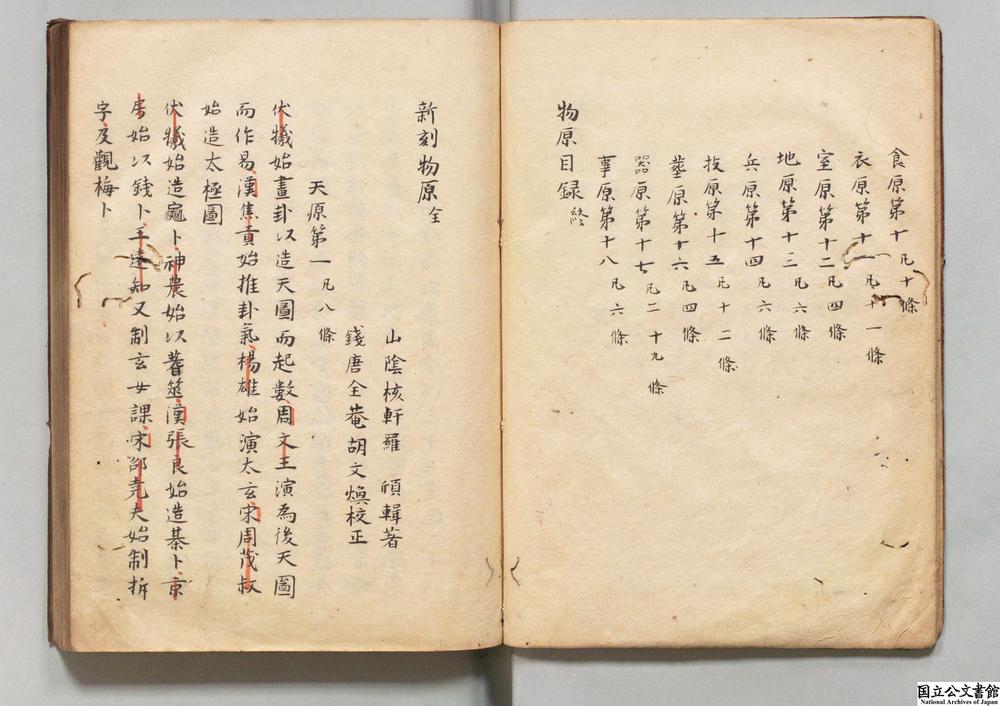 食原第十 凡十條
衣原第十一 凡十一條
室原第十二 凡四條
地原第十三 凡六條
兵原第十四 凡六條
技原第十五 凡十二條
葬原第十六 凡四條
器原第十七 凡二十九條
事原第十八 凡六條
物原目録終
新刻物原全
山陰核軒羅頎輯著
錢唐全菴胡文煥校正
天原第一 凡八條
伏犧始畫卦以造天圖而起數周文王演為後天圖
而作易漢焦貢始推卦氣楊雄始演太玄宋周茂叔
始造太極圖
伏犧始造龜卜神農始以蓍筮漢張良始造棊卜京
房始以錢卜王遠知又制玄女課宋邵堯夫始制拆
字及觀梅卜
国立公文書館
National Archives of Japan